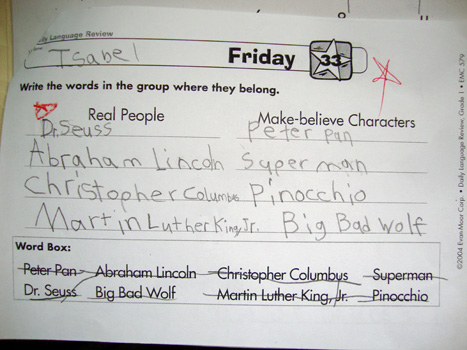 Daily Language Review
Name Isabel
Friday 33
Write the words in the group where they belong.
Real People Make-believe Characters
Dr. Seuss Peter Pan
Abraham Lincoln Superman
Christopher Columbus Pinocchio
Martin Luther King, Jr. Big Bad Wolf
Word Box:
Peter Pan Abraham Lincoln Christopher Columbus Superman
Dr. Seuss Big Bad Wolf Martin Luther King, Jr. Pinocchio
©2004 Evan-Moor Corp. • Daily Language Review, Grade 1 • EMC 579